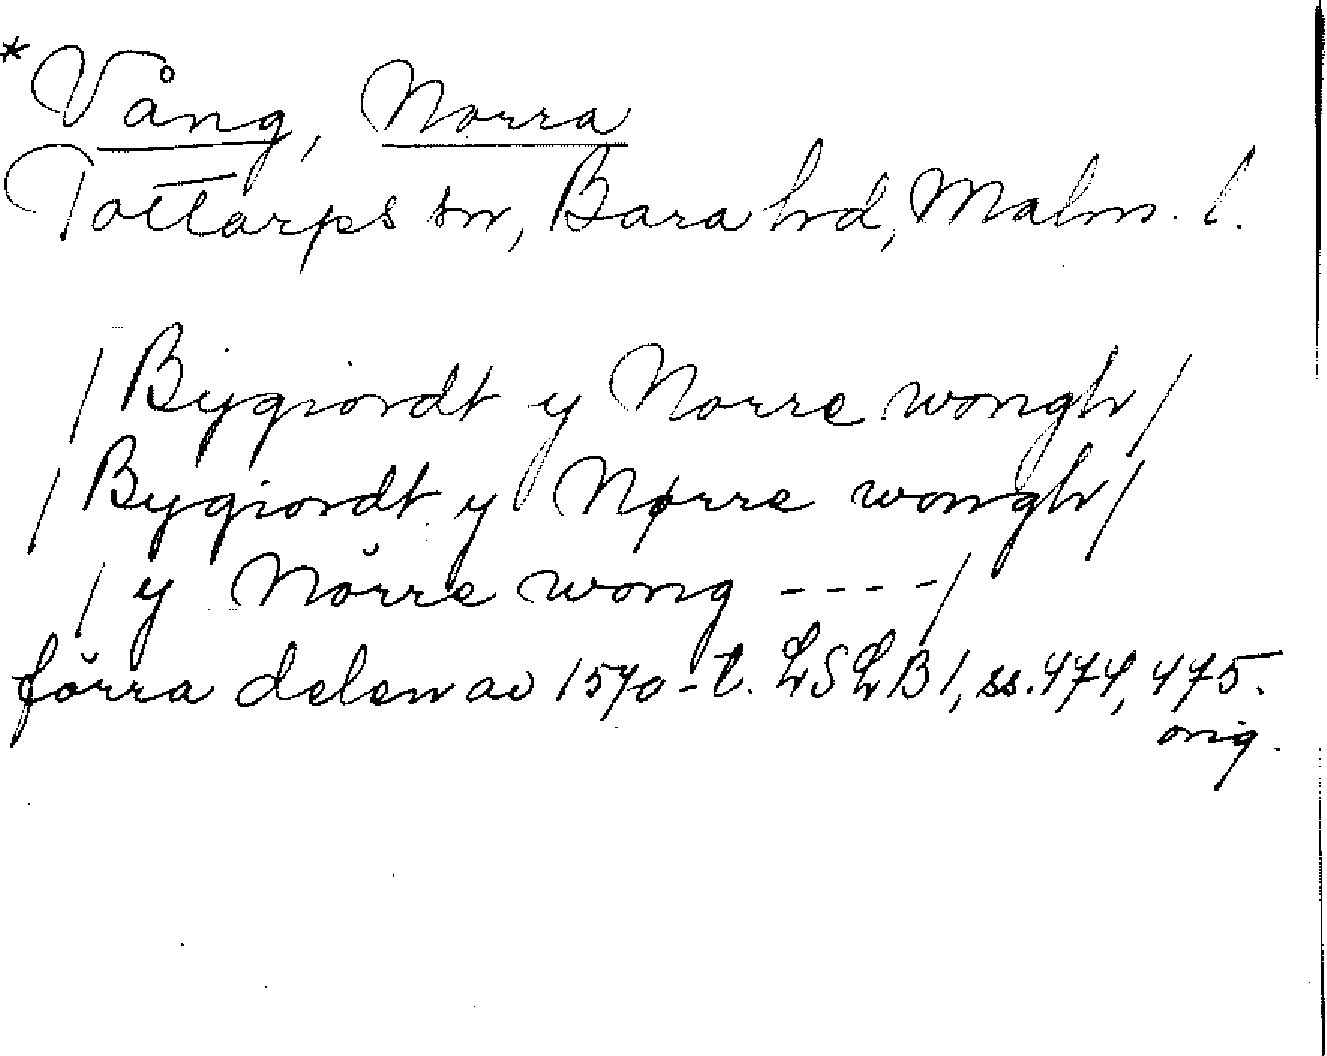 *Vång, Norra
Tottarps sn, Bara hd, Malm. l.
/Bygiordt y Norre wongh/
/Bygiordt y Nørre wongh/
/y Nörre wong ----/
förra delen av 1570-t. LSLB1, ss. 474, 475.
orig.